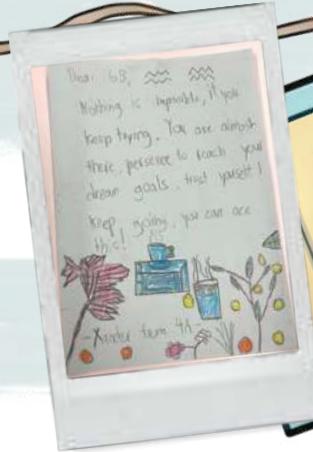 Dear 6B,
Nothing is impossible, if you
keep trying. You are almost
there, persevere to reach your
dream goals, trust yourself!
Keep going, you can ace
this!
-Xander from 4A-